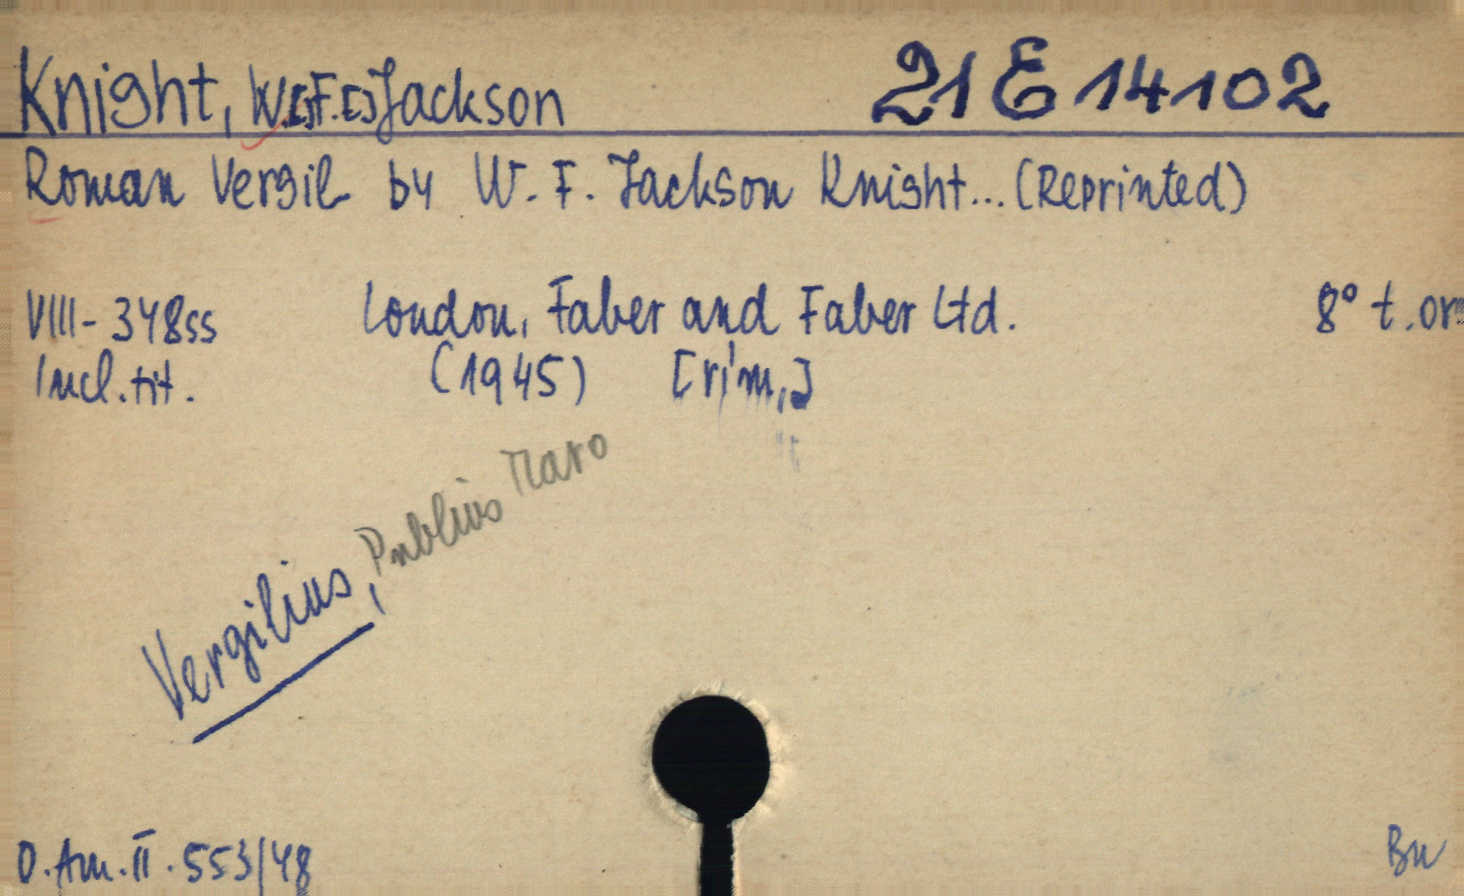 Knight, W.[]F.[] Jackson 21 E 14102
Roman Vergil by W. F. Jackson Knight... (Reprinted)
VIII-348ss London, Faber and Faber Ltd. 8° t.or
Incl.tit. (1945) [rim,]
Vergilius, Publius Maro
D.Am.II.553/48 Bu